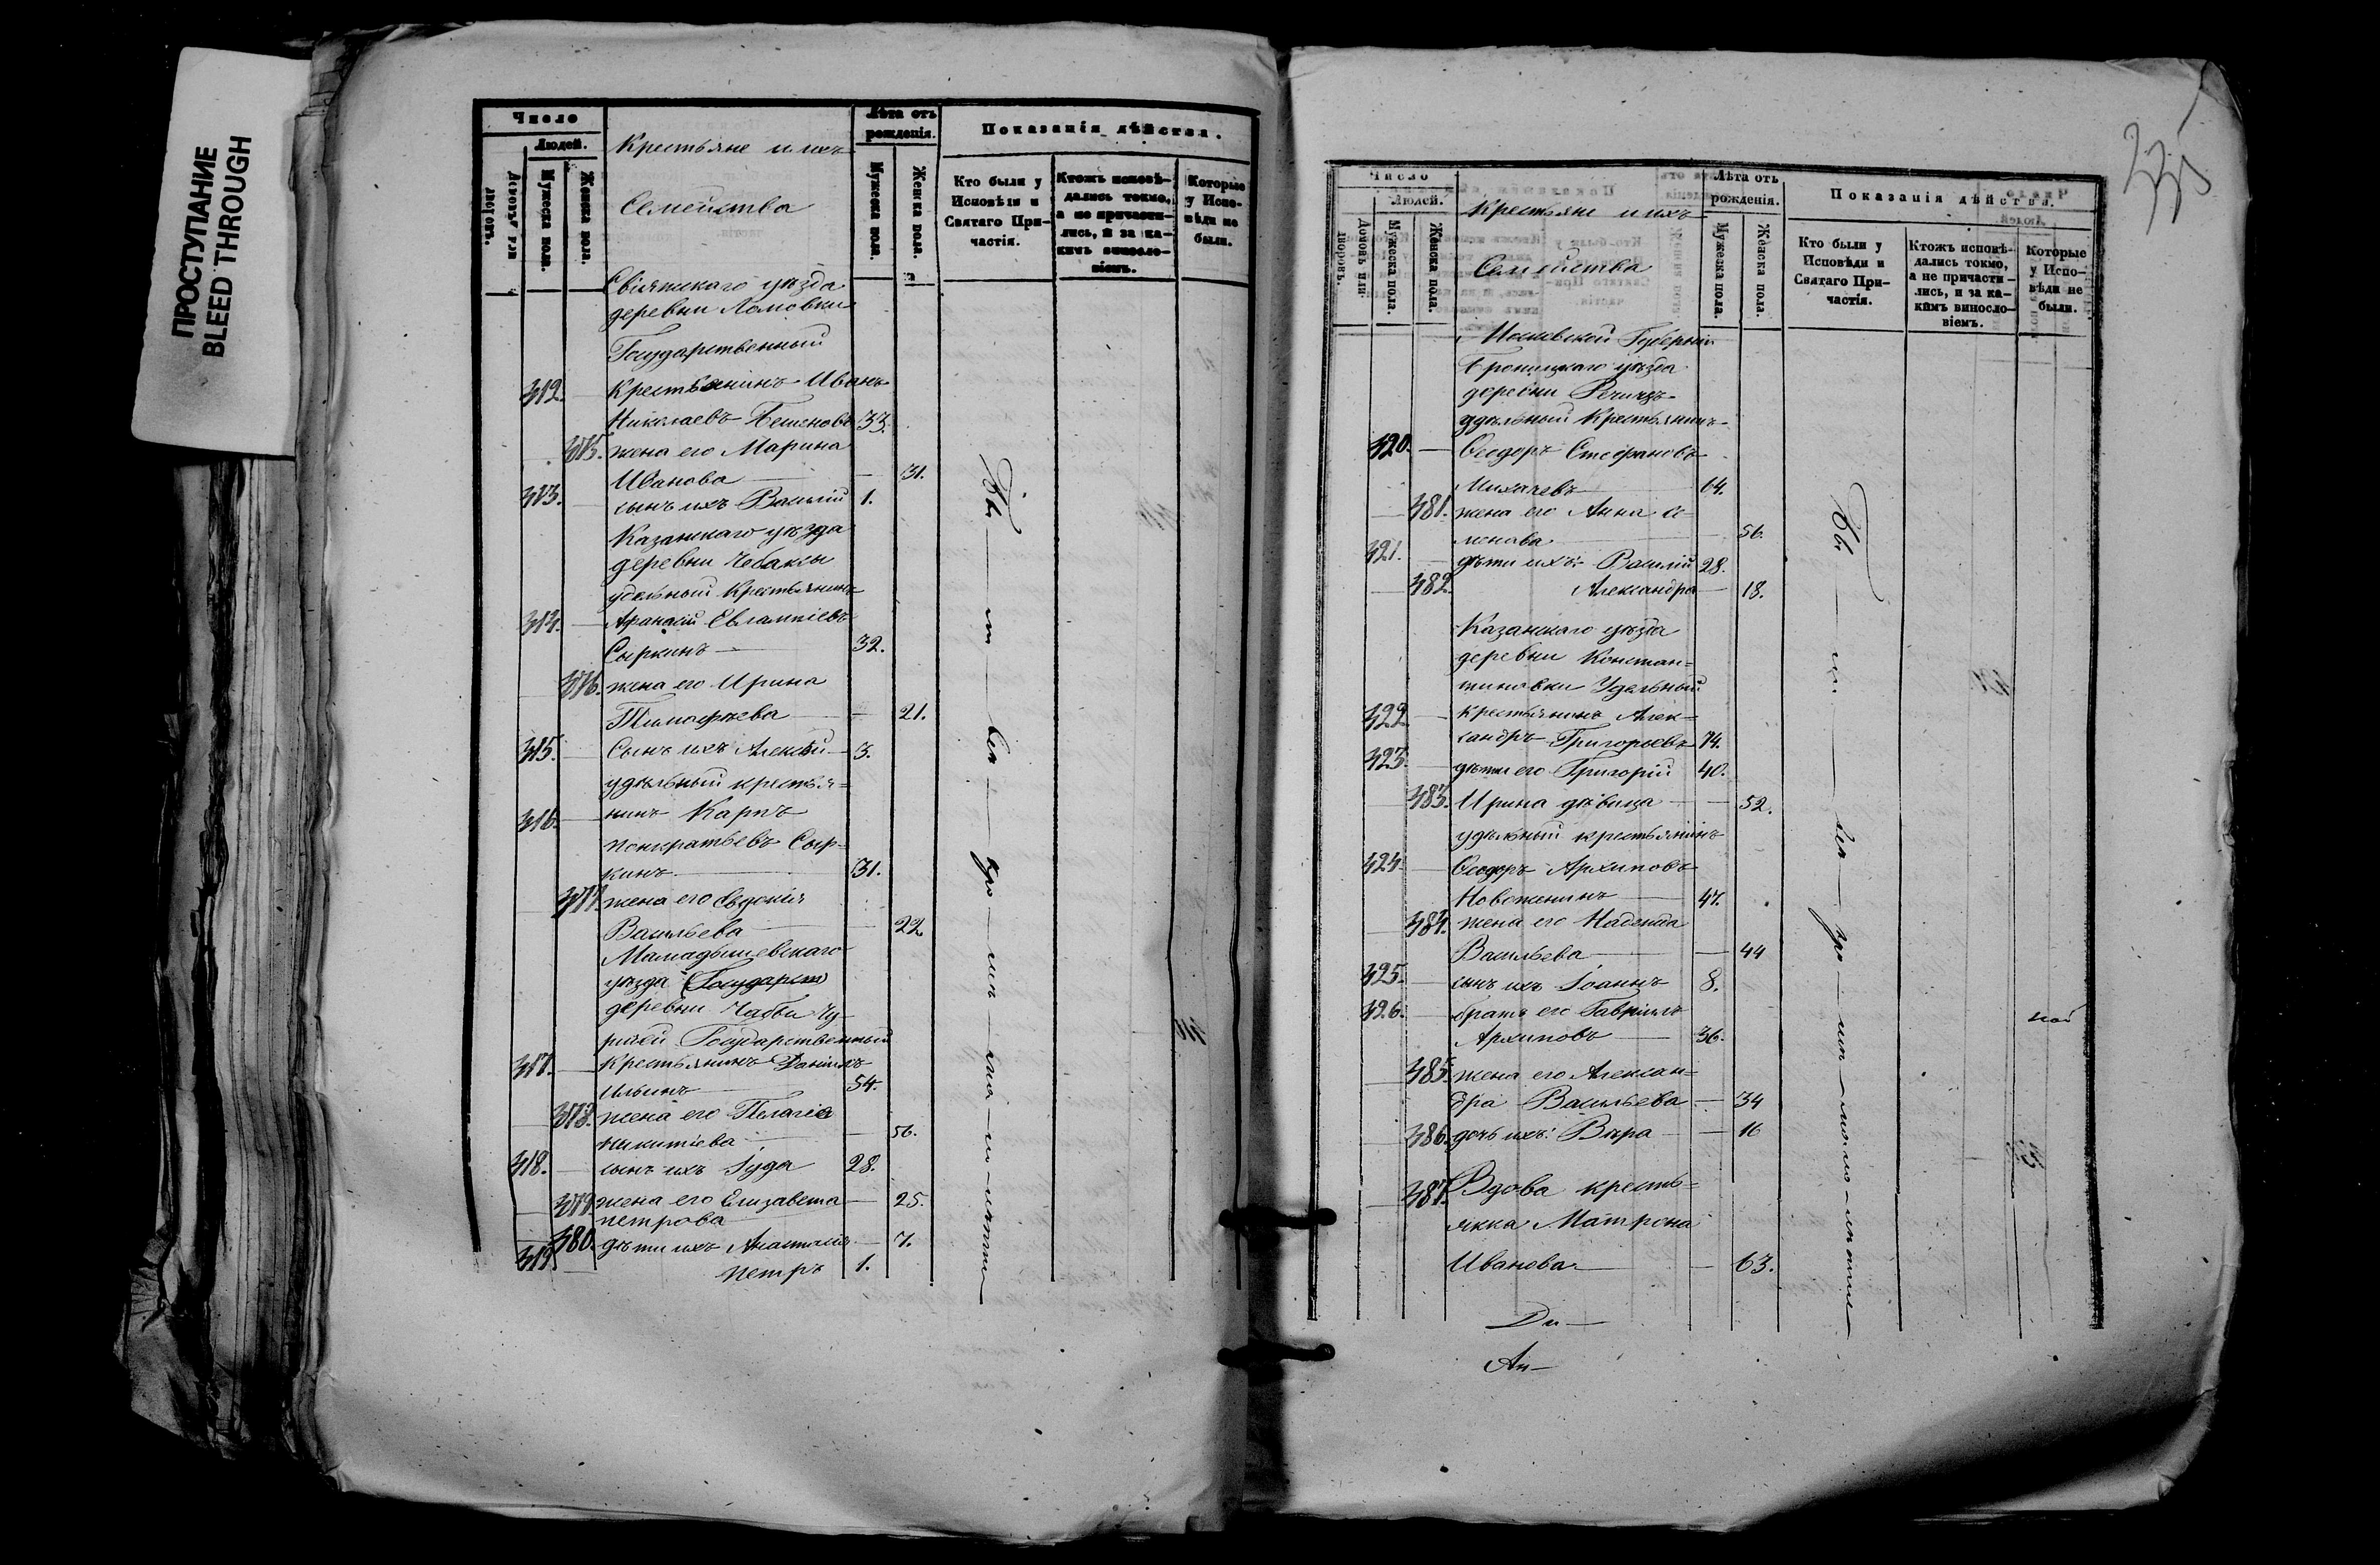 ПРОСТУПАНИЕ
BLEED THROUGH
Число
Людей.
Домовъ или дворовъ.
Мужеска пола.
Женска пола.
Крестьяне и ихъ
Семейства
Лѣта отъ рожденія.
Мужеска пола.
Женска пола.
Показанія дѣйства.
Кто были у Исповѣди и Святаго Причастія.
Ктожъ исповѣдались токмо, а не причастились, и за какимъ винословіемъ.
Которые у Исповѣди не были.
Свіяжскаго уѣзда
деревни Ломовки
Государственный
412. Крестьянинъ Иванъ
Николаевъ 33.
жена его Марина
Иванова — 31.
413. сынъ ихъ Василій 1.
Казанскаго уѣзда
деревни Чебаксы
удѣльный Крестьянинъ
414. Афанасій Евлампіевъ
Сыркинъ — 32.
жена его Ирина
Тимофѣева — 21.
415. Сынъ ихъ Алексѣй — 3.
удѣльный крестья=
416. нинъ Карпъ
понкратьевъ Сыр=
кинъ 31.
жена его Евдокія
Васильева 22
Мамадышевскаго
уѣзда (Государст)
деревни
Государственный
417. Крестьянинъ Даніилъ
Ильинъ 54.
478. жена его Пелагіа
Никитіева 56.
418. сынъ ихъ Іуда 28.
479. жена его Елизавета — 25.
петрова
480. дѣти ихъ Анастасія — 7.
419. петръ 1.
335
Число
Людей.
Домовъ или дворовъ.
Мужеска пола.
Женска пола.
Крестьяне и ихъ
Семейства
Лѣта отъ рожденія.
Мужеска пола.
Женска пола.
Показанія дѣйства.
Кто были у Исповѣди и Святаго Причастія.
Ктожъ исповѣдались токмо, а не причастились, и за какимъ винословіемъ.
Которые у Исповѣди не были.
Московской Губерніи
Броницкаго уѣзда
деревни
удѣльный Крестьянинъ
420. — Ѳеодоръ Стефановъ
64.
481. жена его Анна Се=
менова 56.
421. дѣти ихъ: Василій 28.
482. Александра — 18.
Казанскаго уѣзда
деревни Констан=
тиновки Удельный
422. — крестьянинъ Алек=
сандръ Григорьевъ 74.
423. дѣти его Григорій 40.
483. Ирина дѣвица — 52.
удѣльный крестьянинъ
424. Ѳеодоръ Архиповъ
Новоженинъ 47.
484. жена его Надежда
Васильева — 44
425. сынъ ихъ Іоаннъ 8.
426. братъ его Гавріилъ
Архиповъ 36.
485. жена его Алексан=
дра Васильева — 34
486. дочь ихъ: Вѣра — 16
487. Вдова кресть=
янка Матрона
Иванова — 63.